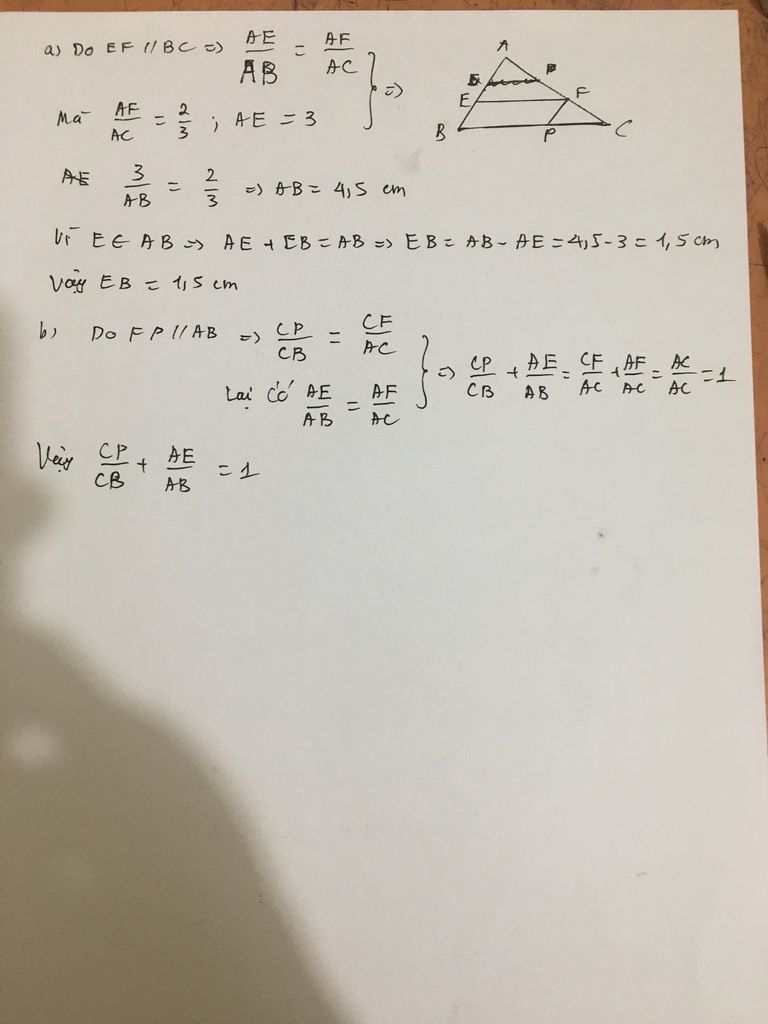 a) Do EF // BC => AE/AB = AF/AC } =>
Mà AF/AC = 2/3 ; AE = 3
3/AB = 2/3 => AB = 4,5 cm
Vì E ∈ AB => AE + EB = AB => EB = AB - AE = 4,5 - 3 = 1,5 cm
Vậy EB = 1,5 cm
b) Do FP // AB => CP/CB = CF/AC
Lại có AE/AB = AF/AC } => CP/CB + AE/AB = CF/AC + AF/AC = AC/AC = 1
Vậy CP/CB + AE/AB = 1
A
E F
B P C